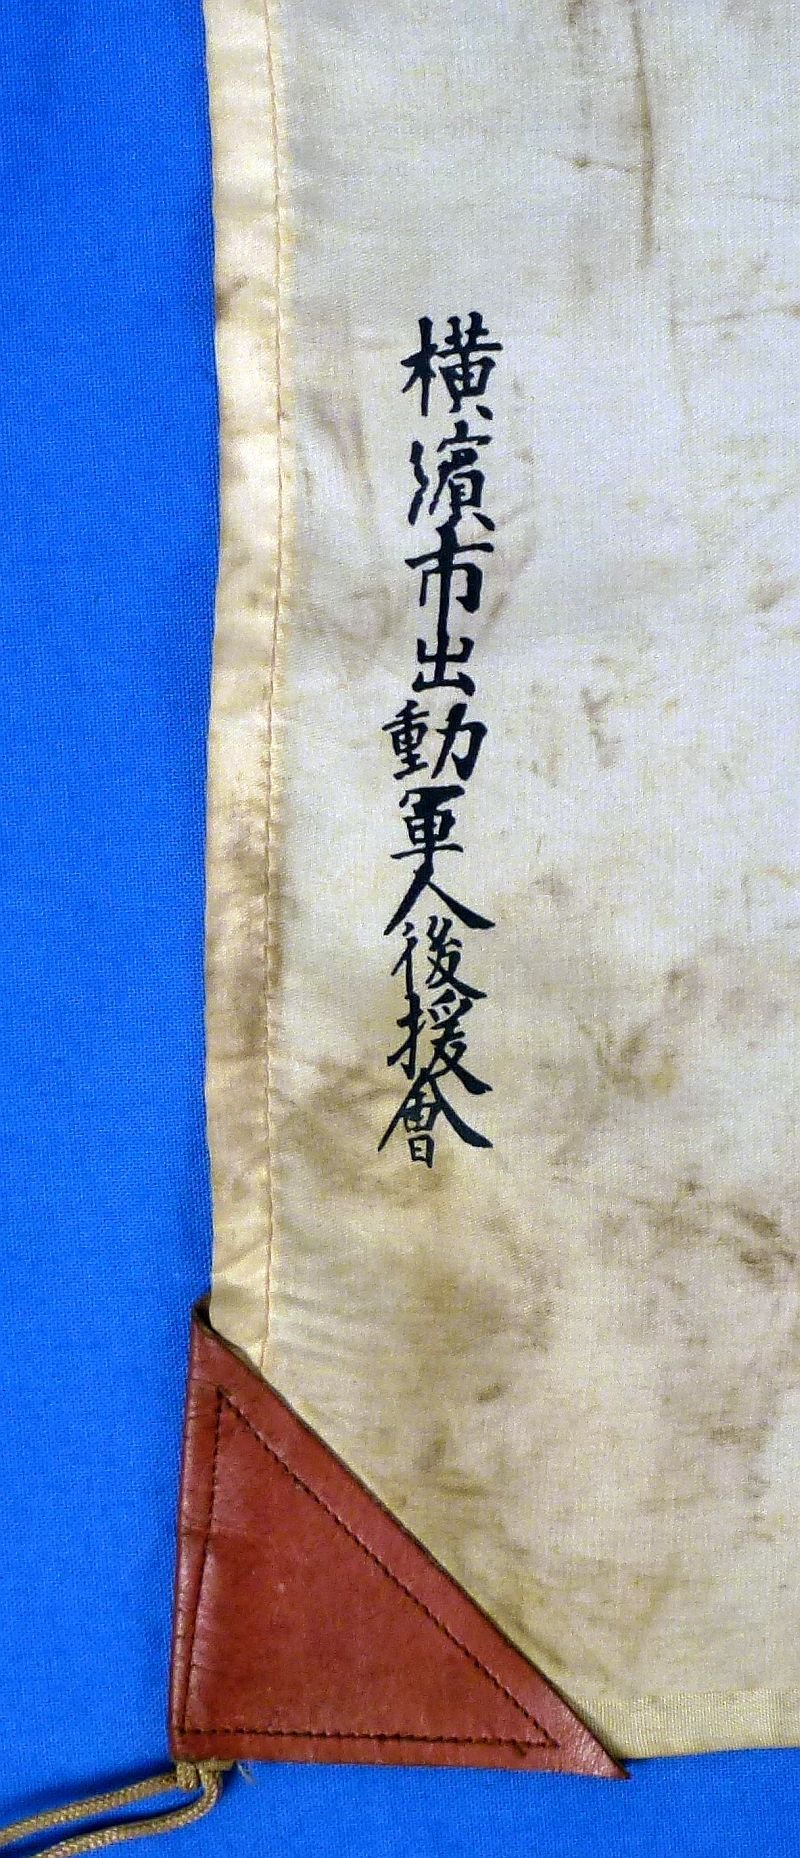 横濱市出動軍人後援會